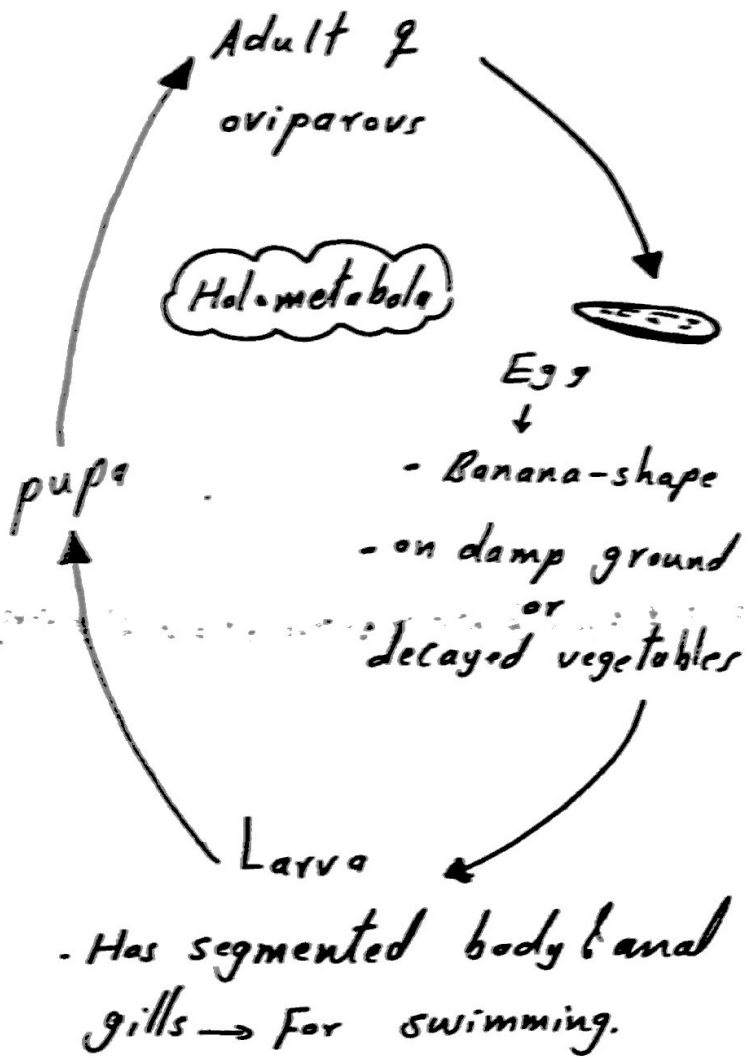 Adult ♀
oviparous
Holometabola
Egg
↓
- Banana-shape
- on damp ground
or
decayed vegetables
Larva
- Has segmented body & anal
gills → For swimming.
pupa